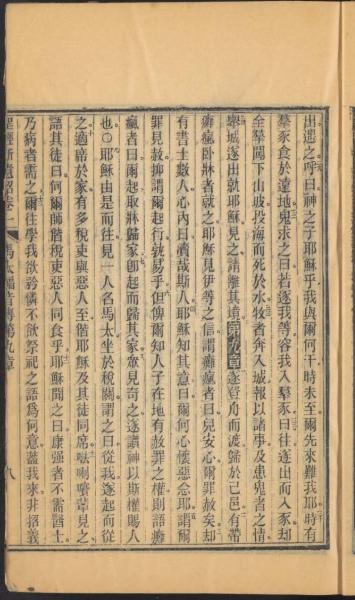 出遇之呼曰神之子耶穌乎我與爾何干時未至爾先來難我耶時有
羣豕食於遠地鬼求之曰若逐我等容我入羣豕曰往遂出而入豕却
全羣闖下山坡投海而死於水牧者奔入城報以諸事及患鬼者之情
舉城遂出就耶穌見之請離其境第九章遂登舟而渡歸於己邑有帶
癱瘋臥牀者就之耶穌見伊等之信謂癱瘋者曰兒安心爾罪赦矣却
有書士數人心內曰瀆哉斯人耶穌知其意曰爾何心懷惡念耶謂爾
罪見赦抑謂爾起行孰易乎但俾爾知人子在地有赦罪之權則語癱
瘋者曰爾起取牀歸家卽起而歸其家眾見奇之遂讚神以斯權賜人
也○耶穌由是而往見一人名馬太坐於稅關謂之曰從我遂起而從
之適藉於家有多稅吏與惡人至偕耶穌及其徒同席唎輩見之
語其徒曰何爾師偕稅吏惡人同食乎耶穌聞之曰康强者不需醫士
乃病者需之爾往學我欲矜憐不飲祭祀之語爲何意蓋我來非招義
馬太福音傳第九章 八